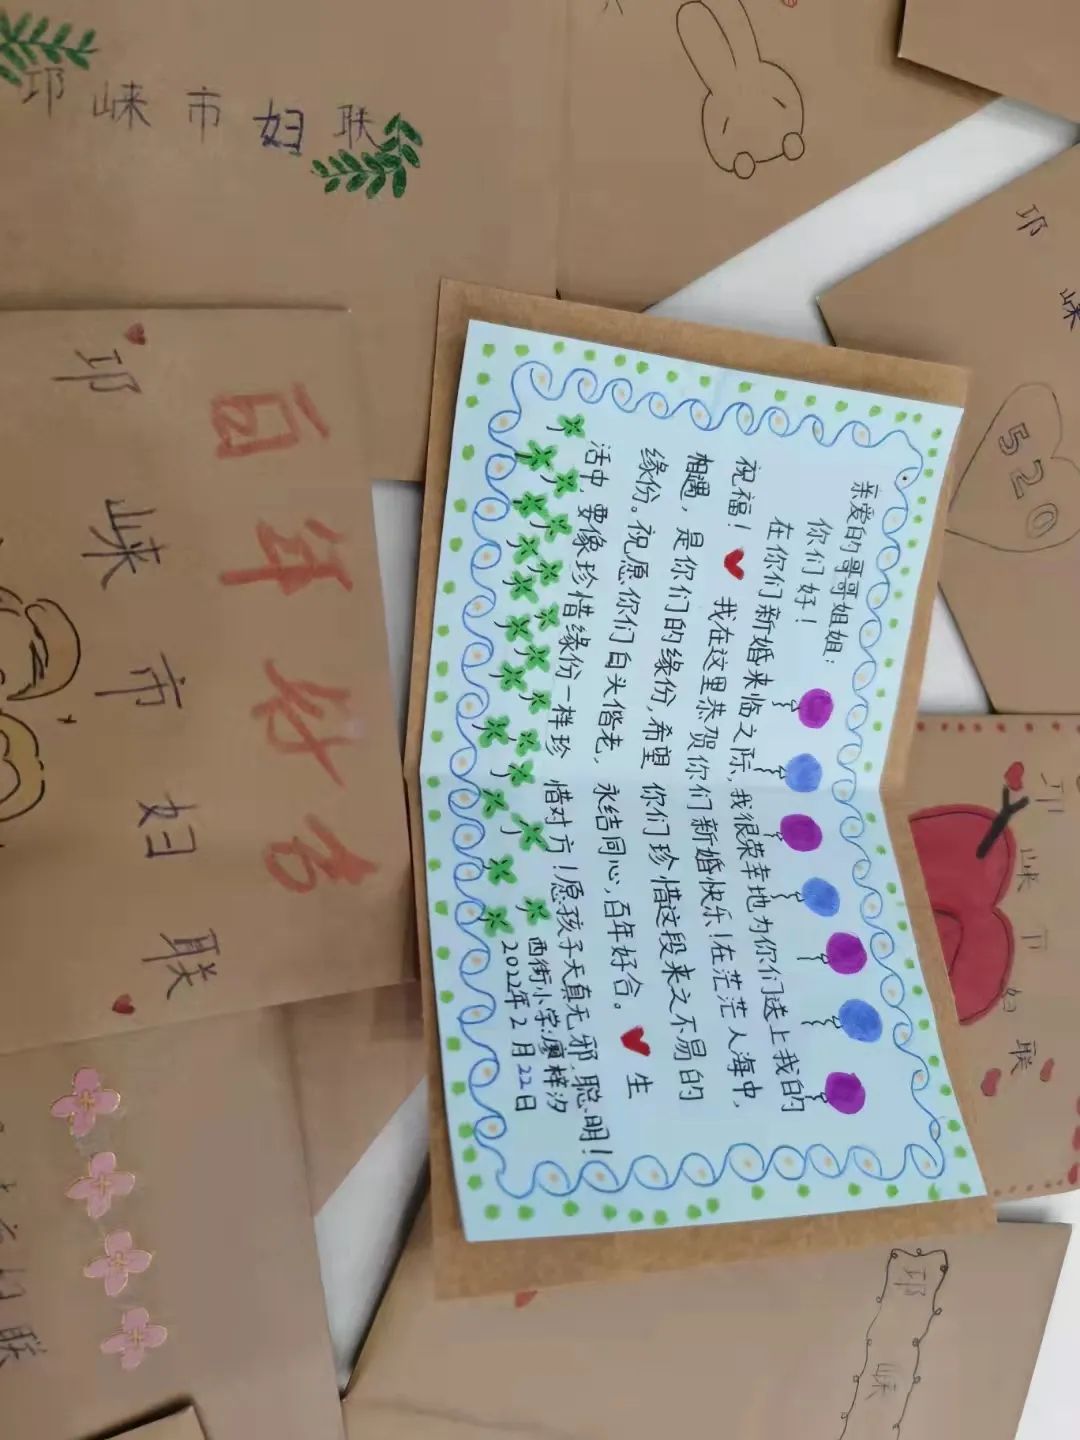 邛崃市妇联
邛崃
520
百年好合
邛崃市妇联
亲爱的哥哥姐姐：
你们好！
在你们新婚来临之际，我很荣幸地为你们送上我的
祝福！我在这里恭贺你们新婚快乐！在茫茫人海中，
相遇，是你们的缘份，希望你们珍惜这段来之不易的
缘份。祝愿你们白头偕老，永结同心，百年好合。生
活中，要像珍惜缘份一样珍惜对方！愿孩子天真无邪，聪明！
西街小学：廖梓汐
2022年2月22日
邛崃市妇联
联
邛崃